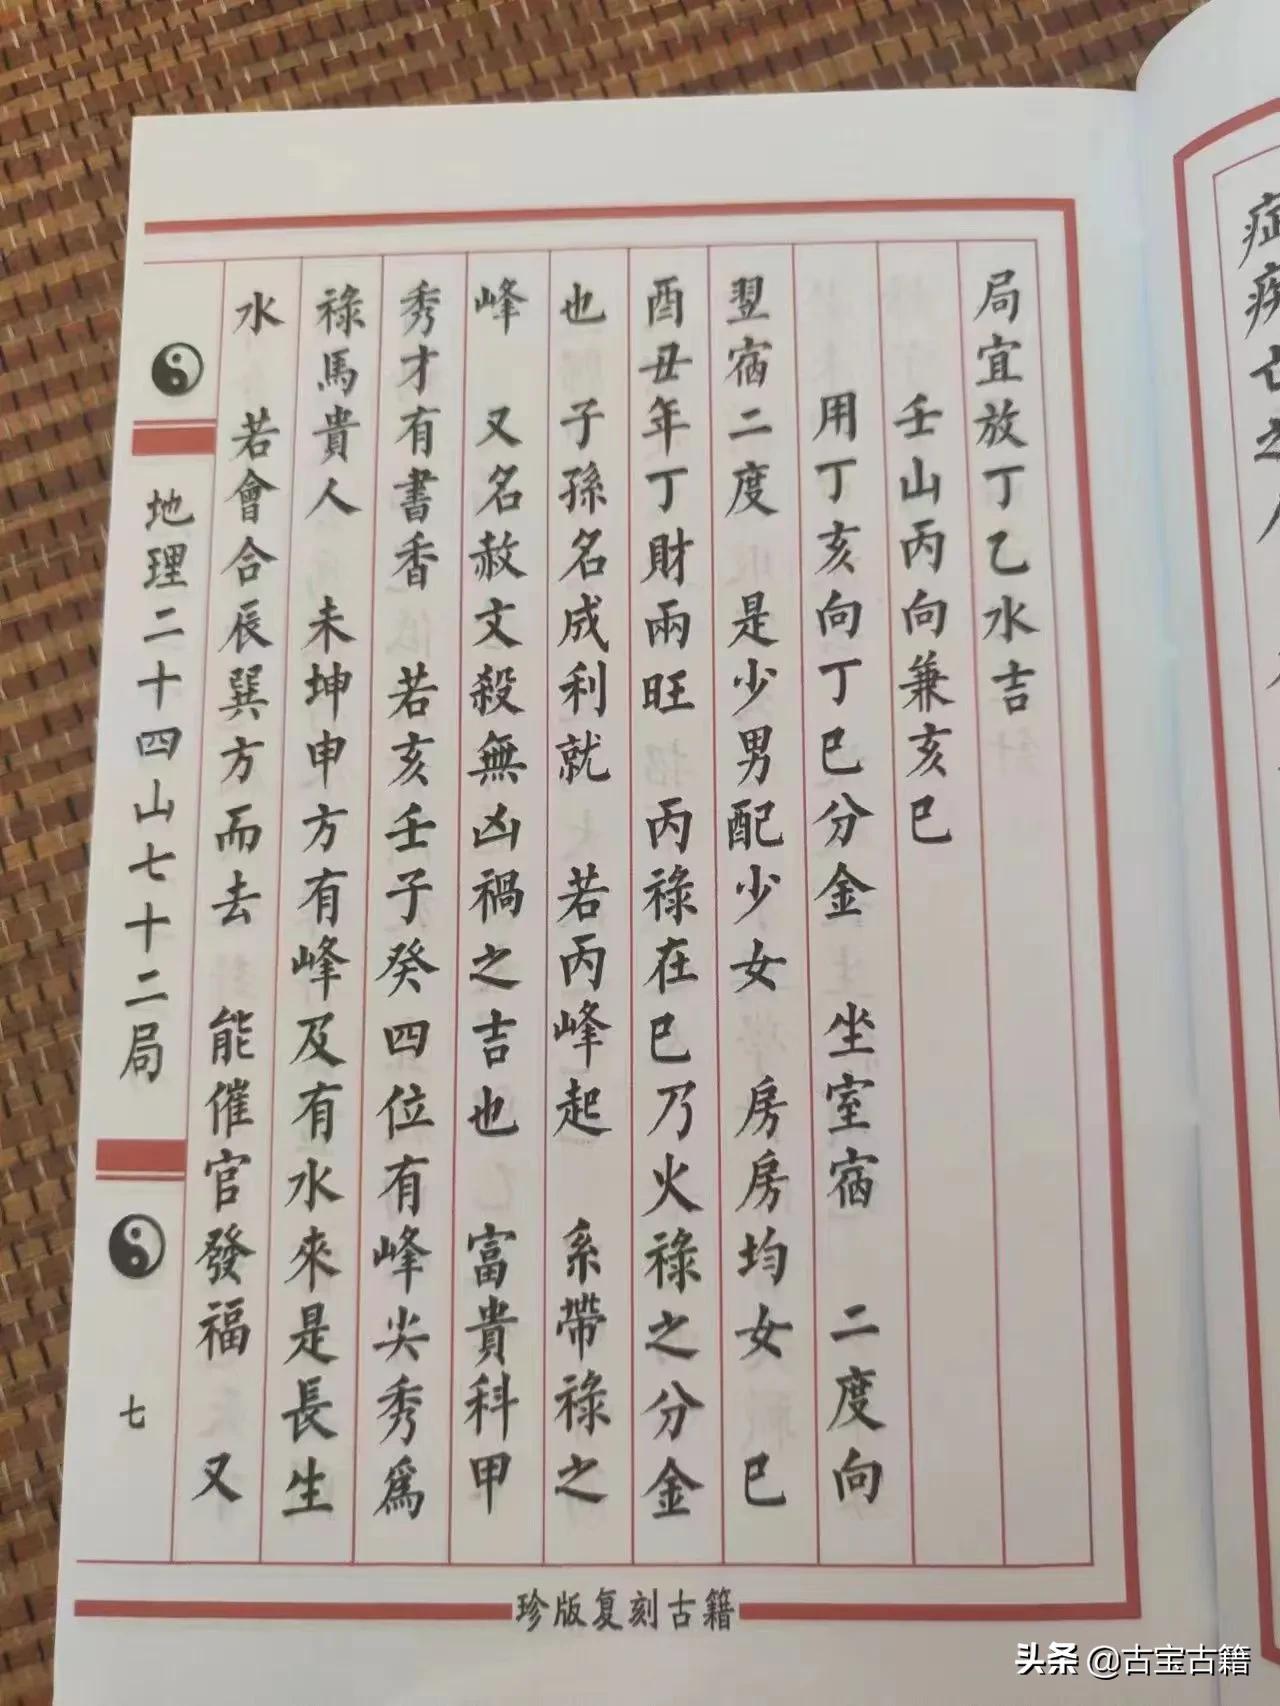 局宜放丁乙水吉
壬山丙向兼亥巳
用丁亥向丁巳分金 坐室宿 二度向
翌宿二度 是少男配少女 房房均女 巳
酉丑年丁財兩旺 丙祿在巳乃火祿之分金
也子孫名成利就 若丙峰起 系帶祿之
峰 又名赦文殺無凶禍之吉也 富貴科甲
秀才有書香 若亥壬子癸四位有峰尖秀爲
祿馬貴人 未坤申方有峰及有水來是長生
水 若會合辰巽方而去 能催官發福 又
地理二十四山七十二局
七
珍版复刻古籍
头条 @古宝古籍